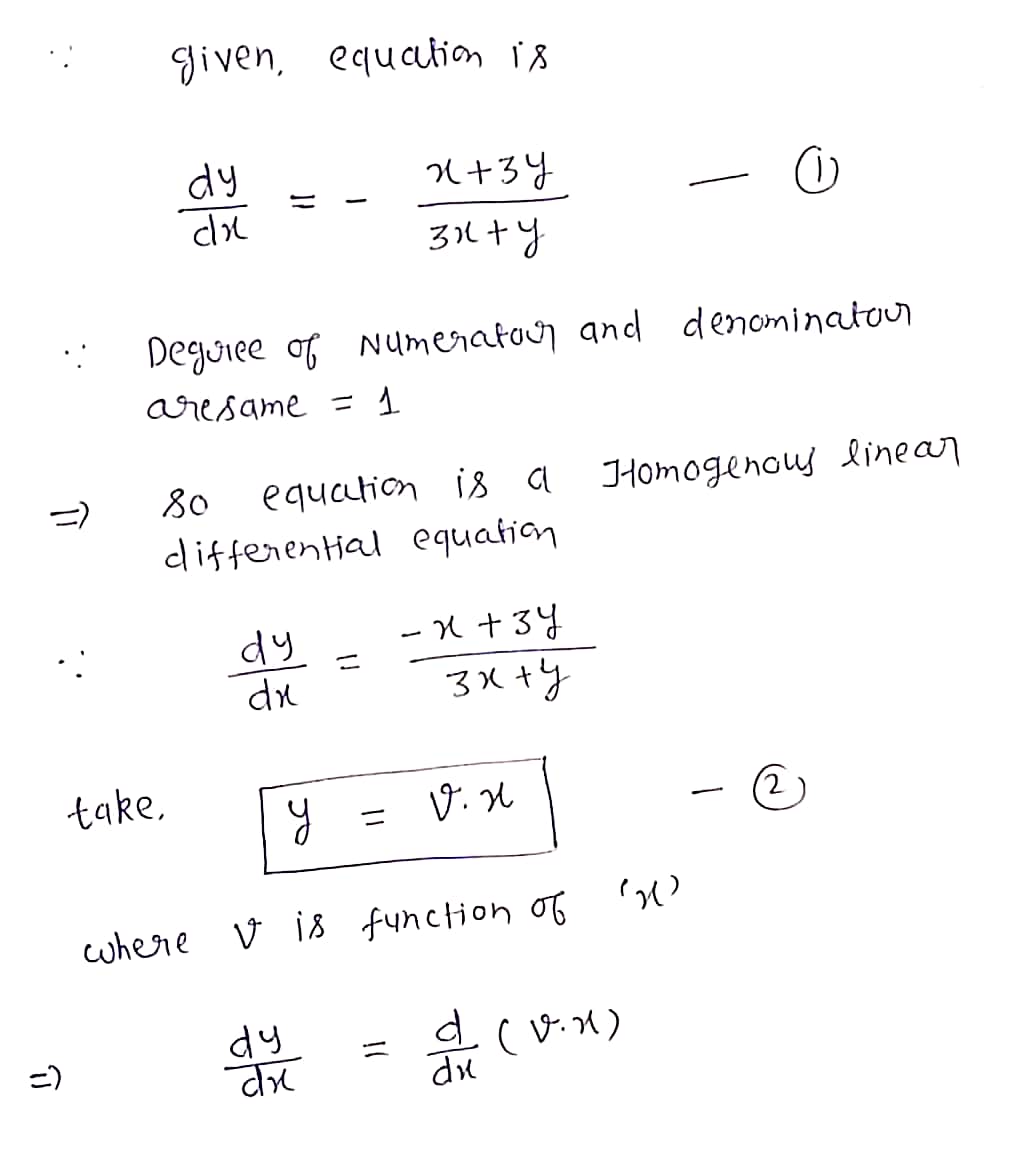 ∵ given, equation is
dy/dx = - (x+3y)/(3x+y) — ①
∵ Degree of Numerator and denominator
are same = 1
⇒ so equation is a Homogenous linear
differential equation
∵ dy/dx = (-x+3y)/(3x+y)
take, y = v.x — ②
where v is function of 'x'
⇒ dy/dx = d/dx (v.x)